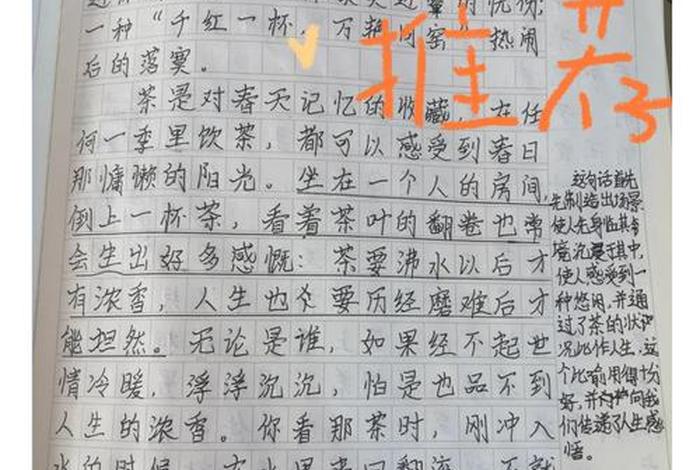 一种“千红一杯，万艳同窑”热闹
后的落寞。
推荐
茶是对春天记忆的收藏，在任
何一季里饮茶，都可以感受到春日
那慵懒的阳光。坐在一个人的房间，
倒上一杯茶，看着茶叶的翻卷也常
会生出好多感慨：茶要沸水以后才
有浓香，人生也要历经磨难后才
能坦然。无论是谁，如果经不起世
情冷暖，浮浮沉沉，怕是也品不到
人生的浓香。你看那茶时，刚冲入
这句话首先
先制造出场景
使人先身临其
境沉浸于其中，
使人感受到一
种悠闲，并通
过了茶的状
况比作人生，这
个比喻用得十分
好，并向我
们传递了人生感
悟。